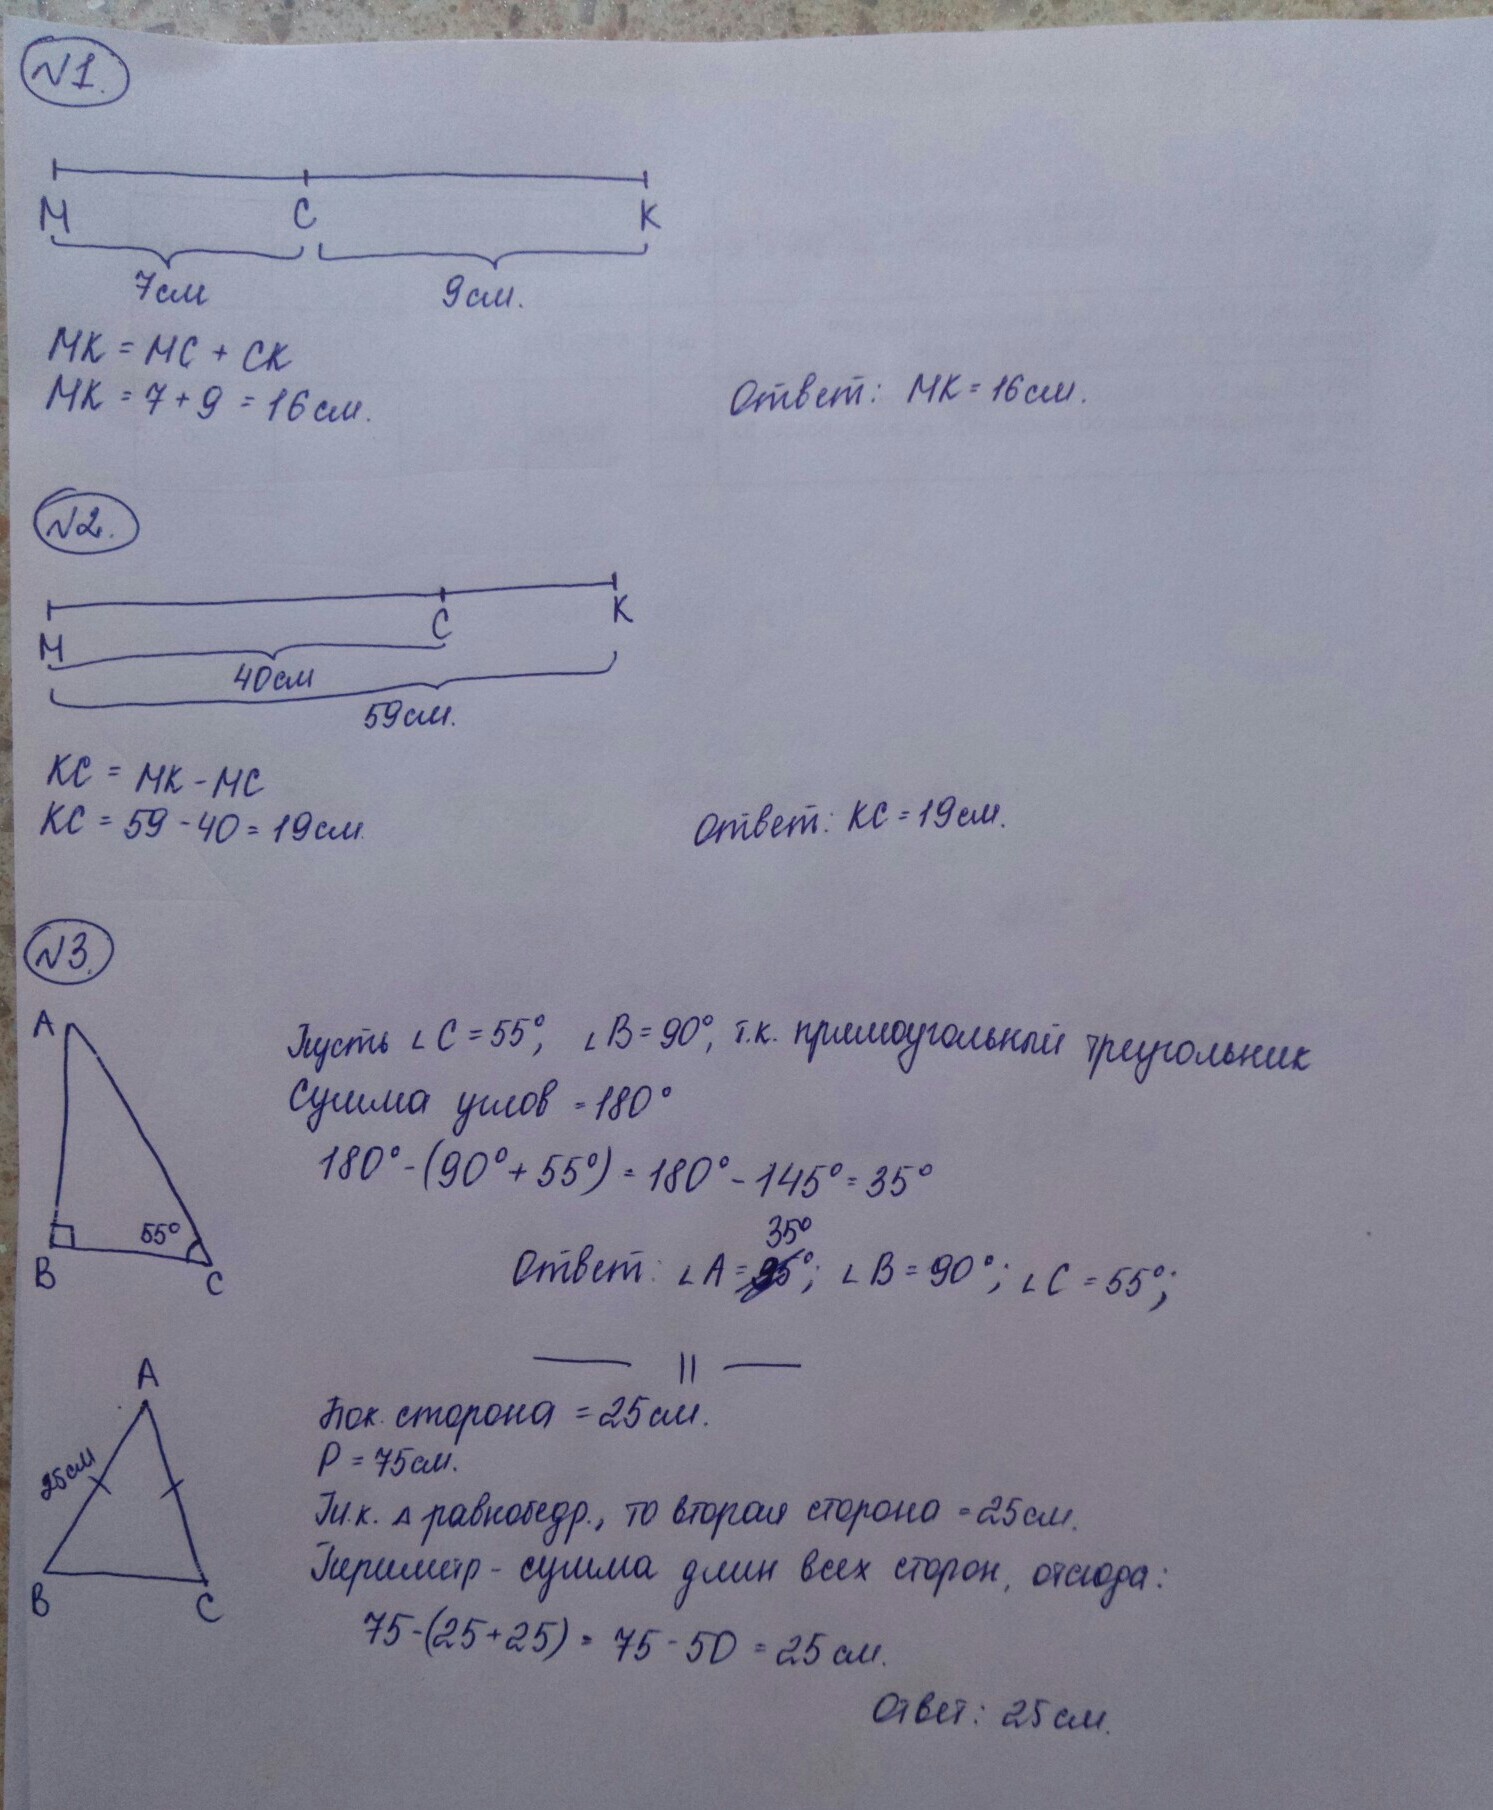 №1.
М С К
7см 9см.
МК = МС + СК
МК = 7 + 9 = 16см.
Ответ: МК = 16см.
№2.
М С К
40см
59см.
КС = МК - МС
КС = 59 - 40 = 19см.
Ответ: КС = 19см.
№3.
A
B
C
55°
Пусть ∠C = 55°; ∠B = 90°, т.к. прямоугольный треугольник
Сумма углов = 180°
180° - (90° + 55°) = 180° - 145° = 35°
35°
Ответ: ∠A = °; ∠B = 90°; ∠C = 55°;
— || —
A
25см
B
C
Бок. сторона = 25см.
P = 75см.
Т.к. △ равнобедр., то вторая сторона = 25см.
Периметр - сумма длин всех сторон, отсюда:
75 - (25 + 25) = 75 - 50 = 25 см.
Ответ: 25 см.